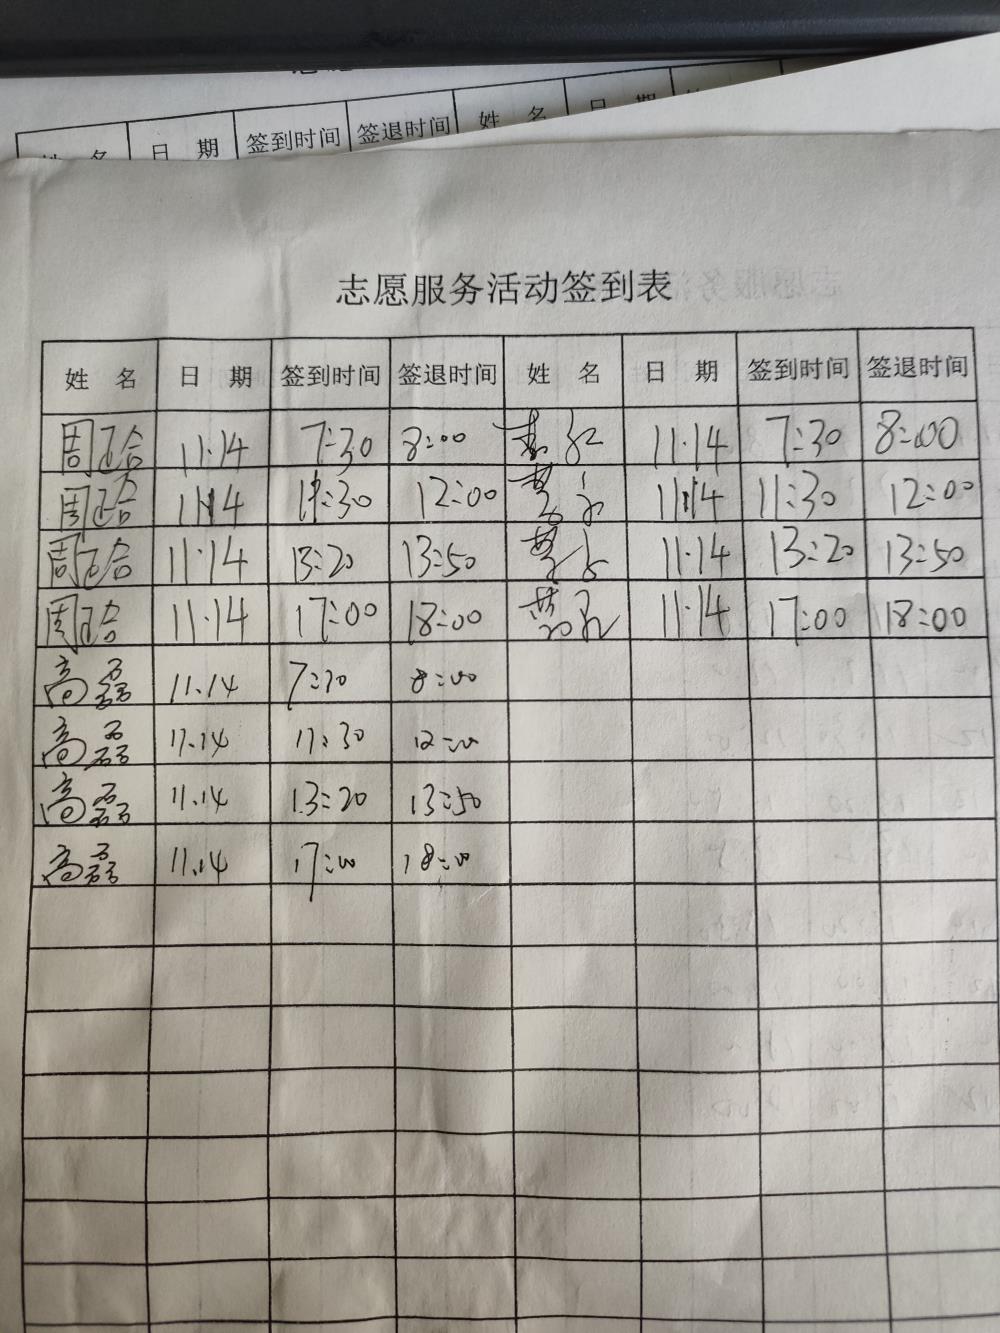 姓 名 日 期 签到时间 签退时间 姓 名 日 期
志愿服务活动签到表
姓 名 日 期 签到时间 签退时间 姓 名 日 期 签到时间 签退时间
周 11.14 7:30 8:00 11.14 7:30 8:00
周 11.14 11:30 12:00 11.14 11:30 12:00
周 11.14 13:20 13:50 11.14 13:20 13:50
周 11.14 17:00 18:00 11.14 17:00 18:00
高磊 11.14 7:30 8:00
高磊 11.14 11:30 12:00
高磊 11.14 13:20 13:50
高磊 11.14 17:00 18:00